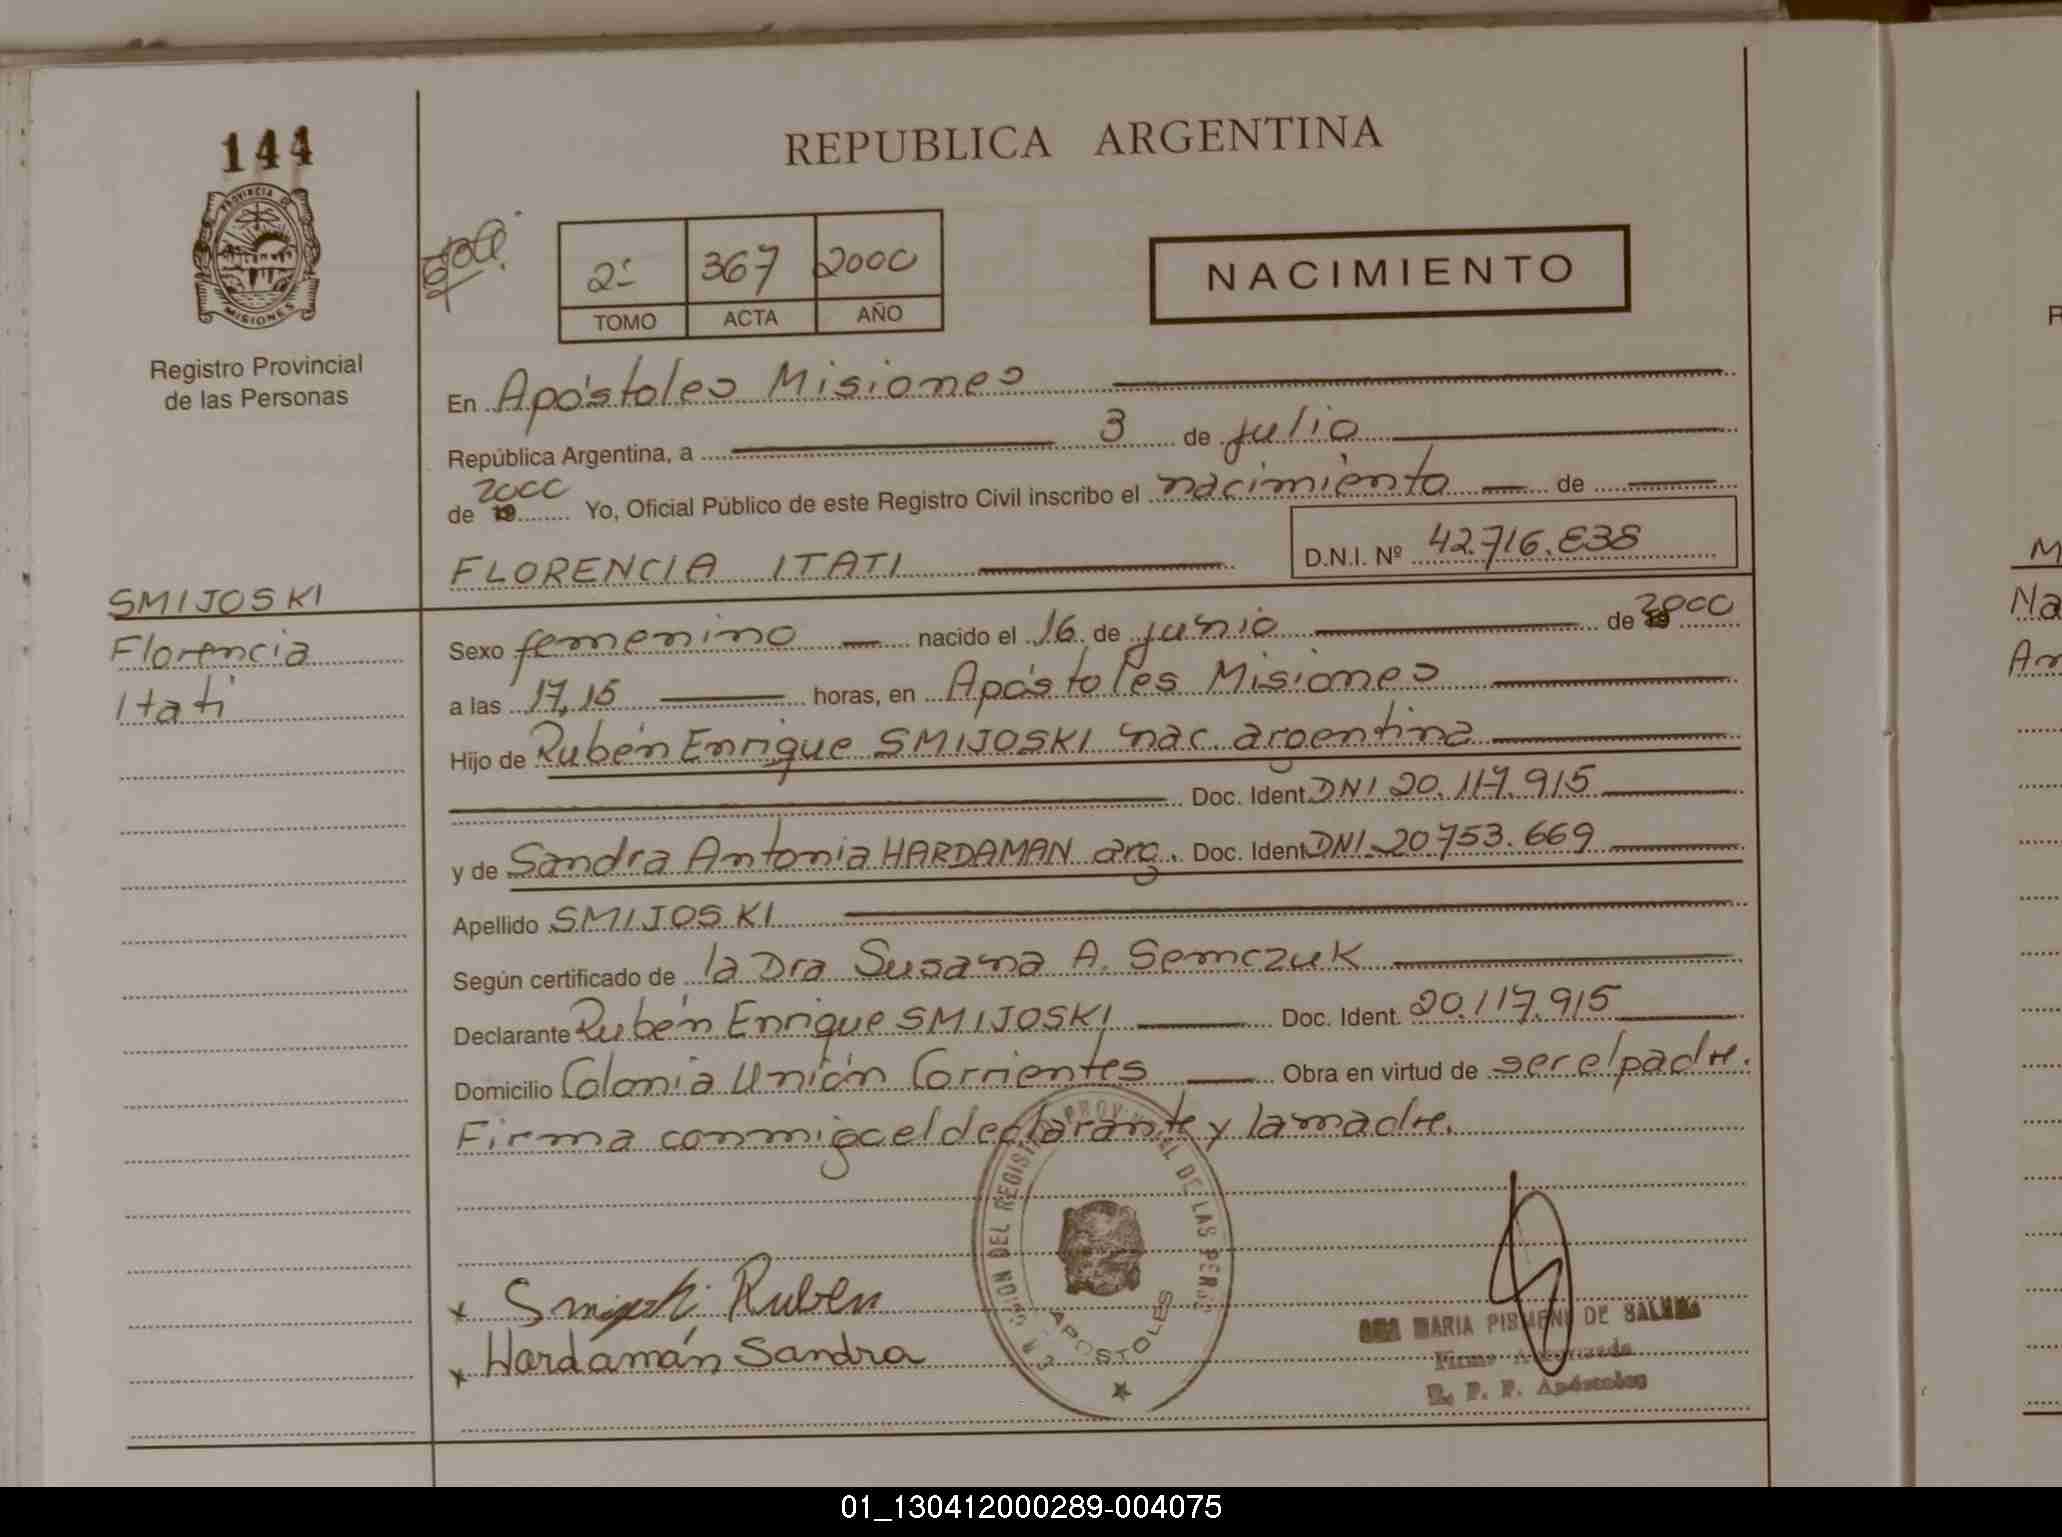 144
REPUBLICA ARGENTINA
PROVINCIA DE
MISIONES
Registro Provincial
de las Personas
2º 367 2000
TOMO ACTA AÑO
NACIMIENTO
En Apóstoles Misiones
República Argentina, a 3 de julio
de 19 2000 Yo, Oficial Público de este Registro Civil inscribo el nacimiento de
FLORENCIA ITATI D.N.I. Nº 42.716.838
SMIJOSKI
Florencia
Itati
Sexo femenino nacido el 16 de junio de 19 2000
a las 17,15 horas, en Apóstoles Misiones
Hijo de Rubén Enrique SMIJOSKI nac. argentina
Doc. Ident. DNI 20.117.915
y de Sandra Antonia HARDAMAN arg. Doc. Ident. DNI. 20753.669
Apellido SMIJOSKI
Según certificado de la Dra Susana A. Semczuk
Declarante Rubén Enrique SMIJOSKI Doc. Ident. 20.117.915
Domicilio Colonia Unión Corrientes Obra en virtud de ser el padre.
Firma conmigo el declarante y la madre.
DEL REGISTRO PROVINCIAL DE LAS
APOSTOLES
x Smijoski Ruben
x Hardamán Sandra
MARIA DE
Firma Autorizada
R. P. P. Apóstoles
M
Na
An
01_130412000289-004075